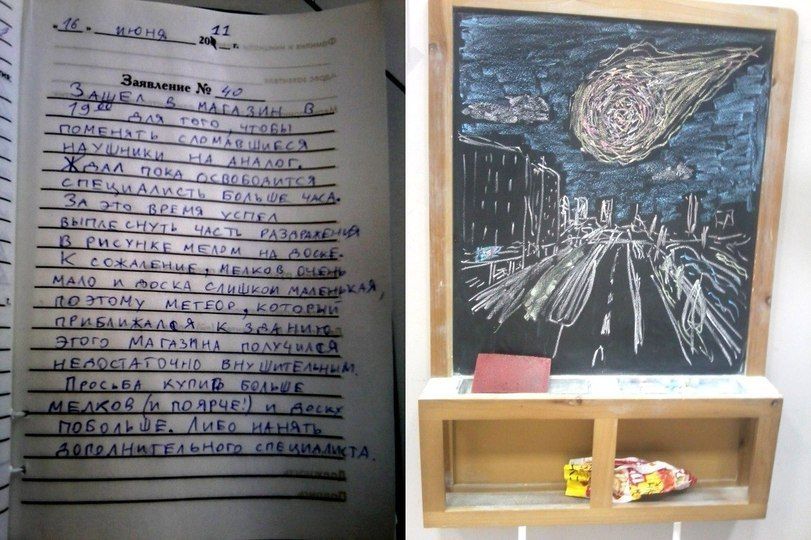 "16" июня 2011 г.
Заявление № 40
ЗАШЕЛ В МАГАЗИН В
19⁰⁰ ДЛЯ ТОГО, ЧТОБЫ
ПОМЕНЯТЬ СЛОМАВШИЕСЯ
НАУШНИКИ НА АНАЛОГ.
ЖДАЛ ПОКА ОСВОБОДИТСЯ
СПЕЦИАЛИСТЬ БОЛЬШЕ ЧАСА.
ЗА ЭТО ВРЕМЯ УСПЕЛ
ВЫПЛЕСНУТЬ ЧАСТЬ РАЗДРАЖЕНИЯ
В РИСУНКЕ МЕЛОМ НА ДОСКЕ.
К СОЖАЛЕНИЕ, МЕЛКОВ ОЧЕНЬ
МАЛО И ДОСКА СЛИШКОМ МАЛЕНЬКАЯ,
ПОЭТОМУ МЕТЕОР, КОТОРЫЙ
ПРИБЛИЖАЛСЯ К ЗДАНИЮ
ЭТОГО МАГАЗИНА ПОЛУЧИЛСЯ
НЕДОСТАТОЧНО ВНУШИТЕЛЬНЫМ.
ПРОСЬБА КУПИТЬ БОЛЬШЕ
МЕЛКОВ (И ПОЯРЧЕ!) И ДОСКУ
ПОБОЛЬШЕ. ЛИБО НАНЯТЬ
ДОПОЛНИТЕЛЬНОГО СПЕЦИАЛИСТА.